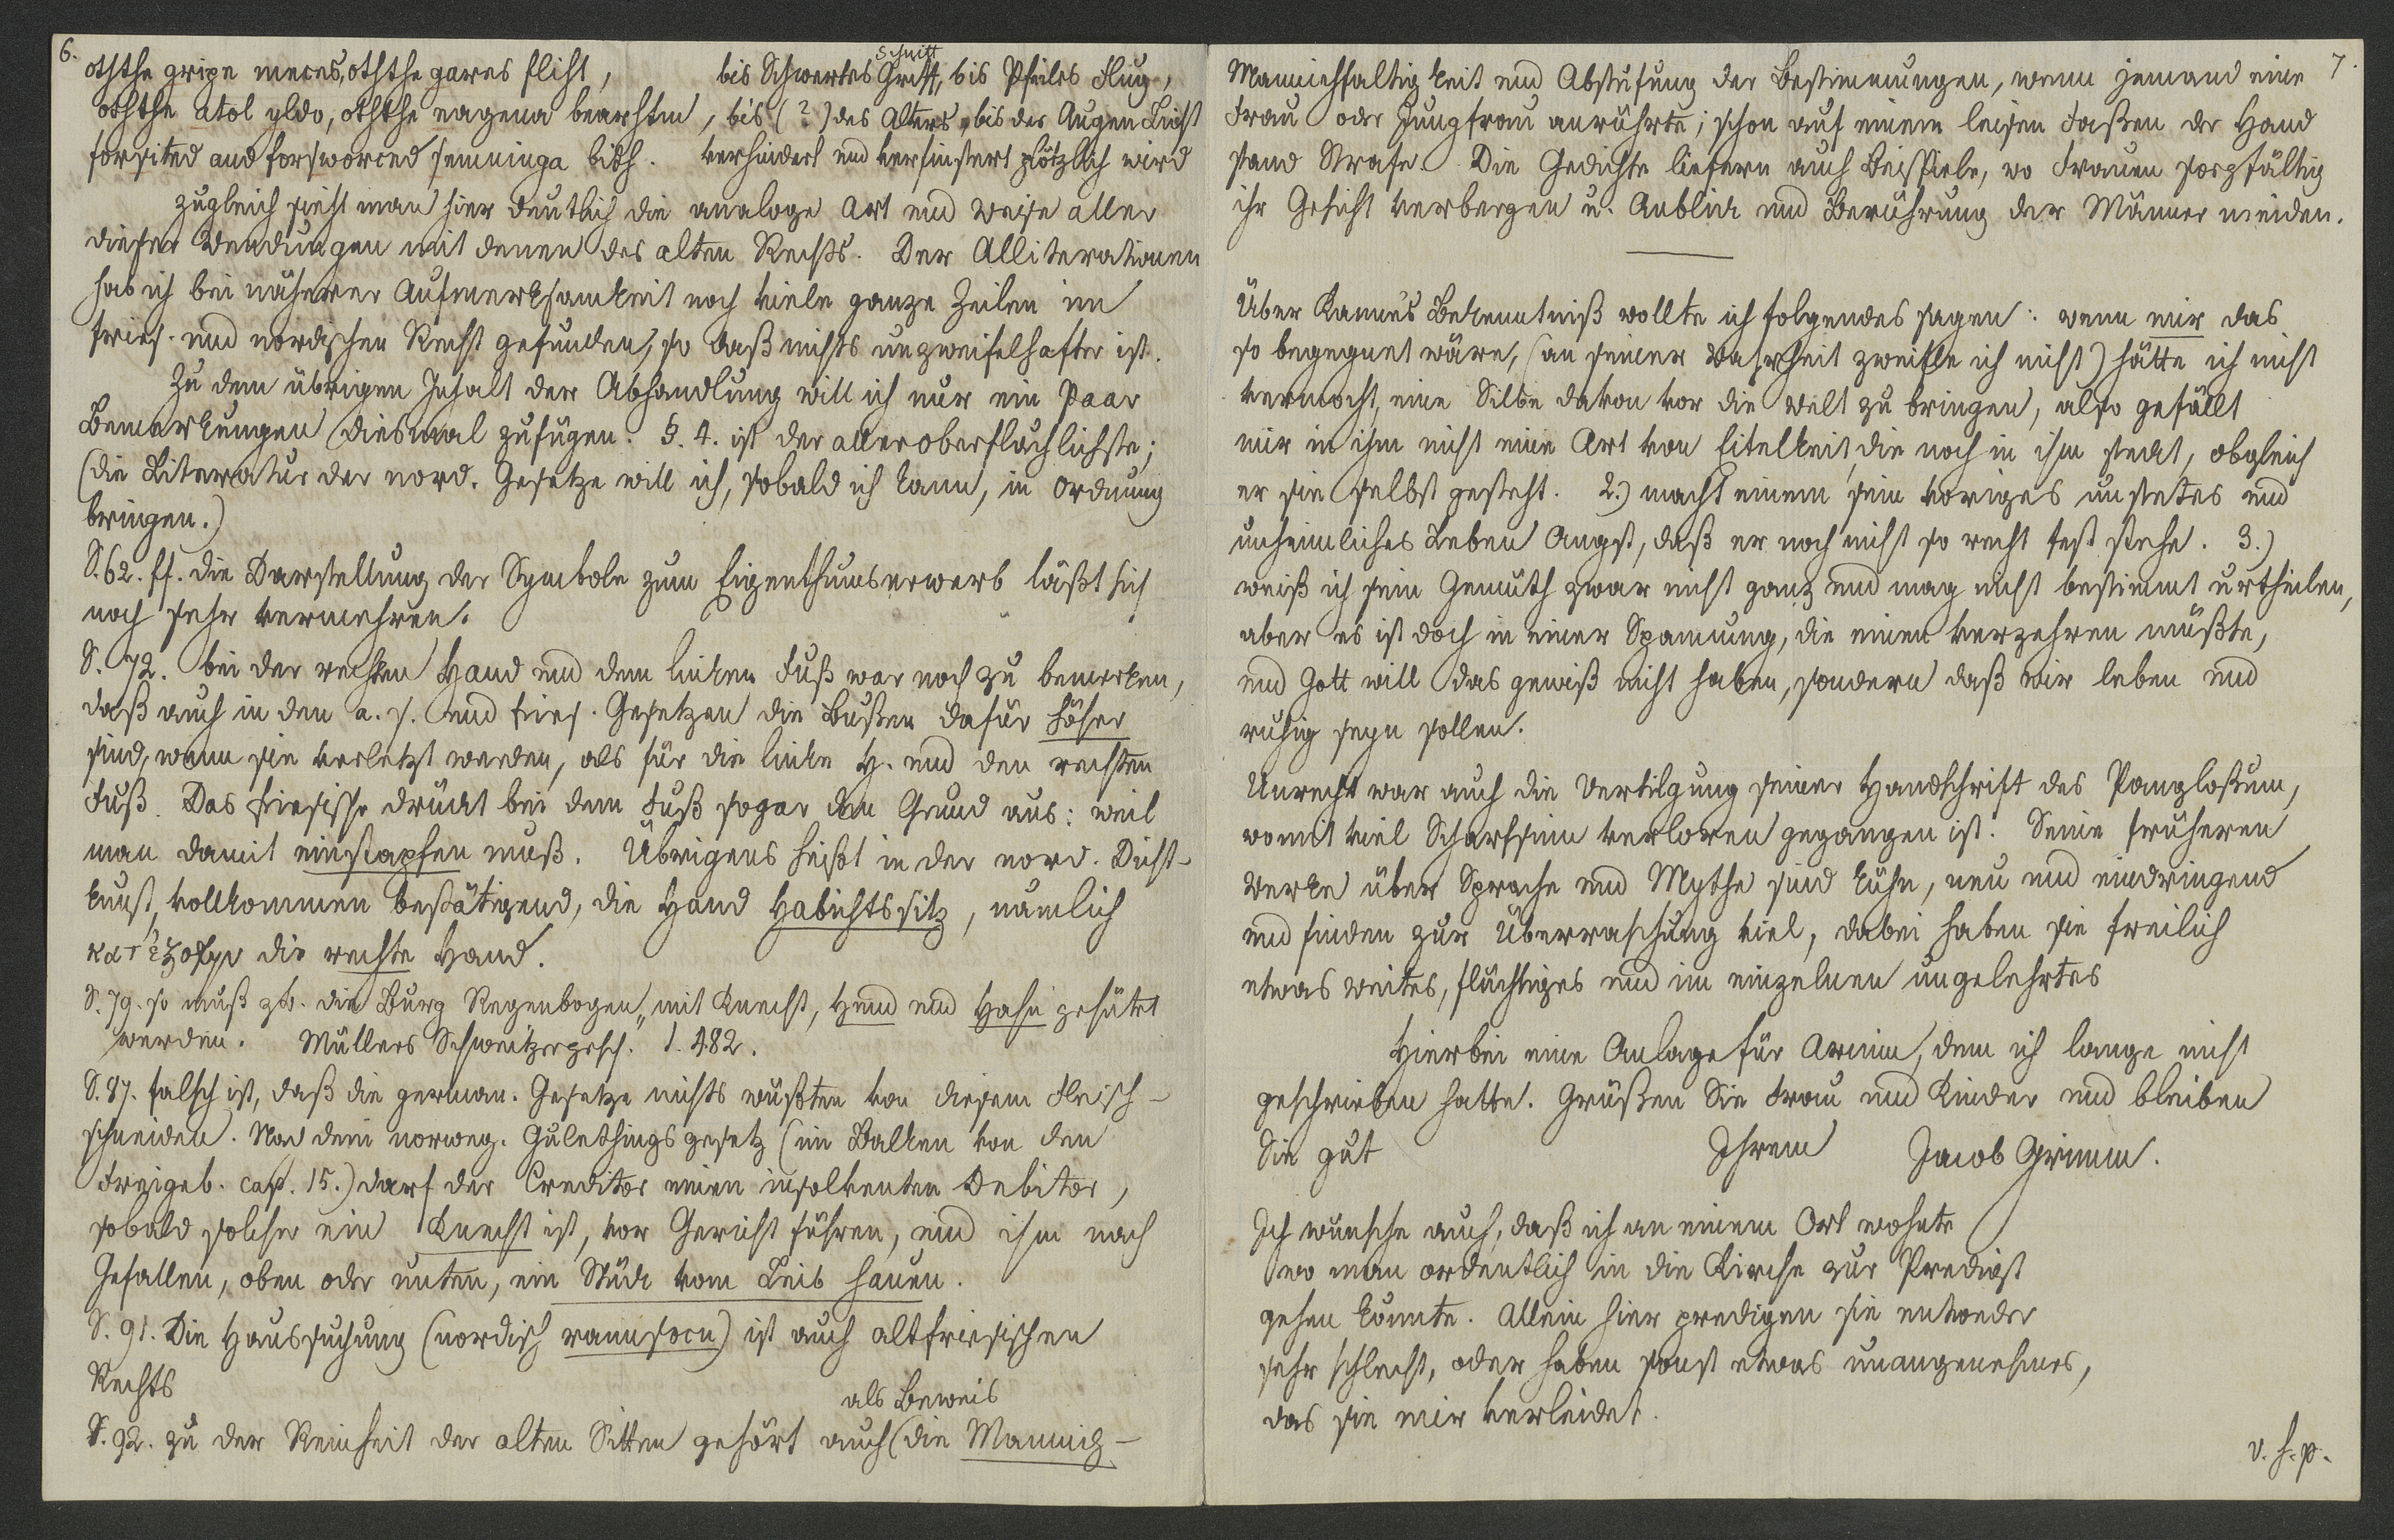 6.
oththe gripe meces, oththe gares fliht, bis Schwertes Griff, bis Pfeiles Flug,
Schnitt
oththe atol yldo, oththe eagena bearhtm, bis (?) des Alters, bis der Augen Licht
forsited and forsworced semninga bidh. verhindert und verfinstert plötzlich wird
zugleich sieht man hier deutlich die analoge Art und Weise aller
dieser Wendungen mit denen des alten Rechts. Der Alliterationen
hab ich bei näherer Aufmerksamkeit noch viele ganze Zeilen im
fries. und nordischen Recht gefunden, so daß nichts unzweifelhafter ist.
Zu dem übrigen Inhalt der Abhandlung will ich nur ein Paar
Bemerkungen diesmal zufügen: §. 4. ist der alleroberflächlichste;
(die Literatur der nord. Gesetze will ich, sobald ich kann, in Ordnung
bringen.)
S. 62. ff. die Darstellung der Symbole zum Eigenthumserwerb läßt sich
noch sehr vermehren.
S. 72. bei der rechten Hand und dem linken Fuß war noch zu bemerken,
daß auch in den a. s. und fries. Gesetzen die Bußen dafür höher
sind, wenn sie verletzt werden, als für die linke H. und den rechten
Fuß. Das friesische drückt bei dem Fuß sogar den Grund aus: weil
man damit einstapfen muß. Übrigens heißt in der nord. Dicht-
kunst, vollkommen bestätigend, die Hand Habichtssitz, nämlich
κατ' ἐξοχην die rechte Hand.
S. 79. so muß zb. die Burg Regenbogen „mit Knecht, Hund und Hahn gehütet
werden. Müllers Schweitzergesch. 1. 482.
S. 87. falsch ist, daß die german. Gesetze nichts wüßten von diesem Fleisch-
schneiden. Nach dem norweg. Gulethingsgesetz (im Balken von den
Freigeb. cap. 15.) darf der Creditor einen insolventen Debitor,
sobald solcher ein Knecht ist, vor Gericht führen, und ihm nach
Gefallen, oben oder unten, ein Stück vom Leib hauen.
S. 91. Die Haussuchung (nordisch rannsocn) ist auch altfriesischen
Rechts
als Beweis
S. 92. zu der Reinheit der alten Sitten gehört auch (die Mannig-
7.
Mannichfaltigkeit und Abstufung der Bestimmungen, wenn jemand eine
Frau oder Jungfrau anrührte; schon auf einem leisen Faßen der Hand
stand Strafe. Die Gedichte liefern auch Beispiele, wo Frauen sorgfältig
ihr Gesicht verbergen u. Anblick und Berührung der Männer meiden.
Über Kanne's Bekenntniß wollte ich folgendes sagen: wenn mir das
so begegnet wäre, (an seiner Wahrheit zweifle ich nicht) hätte ich nicht
vermocht, eine Silbe davon vor die Welt zu bringen, also gefällt
mir in ihm nicht eine Art von Eitelkeit, die noch in ihm steckt, obgleich
er sie selbst gesteht. 2.) macht einem sein voriges unstetes und
unheimliches Leben Angst, daß er noch nicht so recht fest stehe. 3.)
weiß ich sein Gemüth zwar nicht ganz und mag nicht bestimmt urtheilen,
aber es ist doch in einer Spannung, die einen verzehren müßte,
und Gott will das gewiß nicht haben, sondern daß wir leben und
ruhig seyn sollen.
Unrecht war auch die Vertilgung seiner Handschrift des Panglossum,
womit viel Scharfsinn verloren gegangen ist. Seine früheren
Werke über Sprache und Mythe sind kühn, neu und eindringend
und finden zur Überraschung viel, dabei haben sie freilich
etwas weites, flüchtiges und im einzelnen ungelehrtes
Hierbei eine Anlage für Arnim, dem ich lange nicht
geschrieben hatte. Grüßen Sie Frau und Kinder und bleiben
Sie gut Ihrem Jacob Grimm.
Ich wünsche auch, daß ich an einem Ort wohnte
wo man ordentlich in die Kirche zur Predigt
gehen könnte. Allein hier predigen sie entweder
sehr schlecht, oder haben sonst etwas unangenehmes,
das sie mir verleidet.
v. s. p.